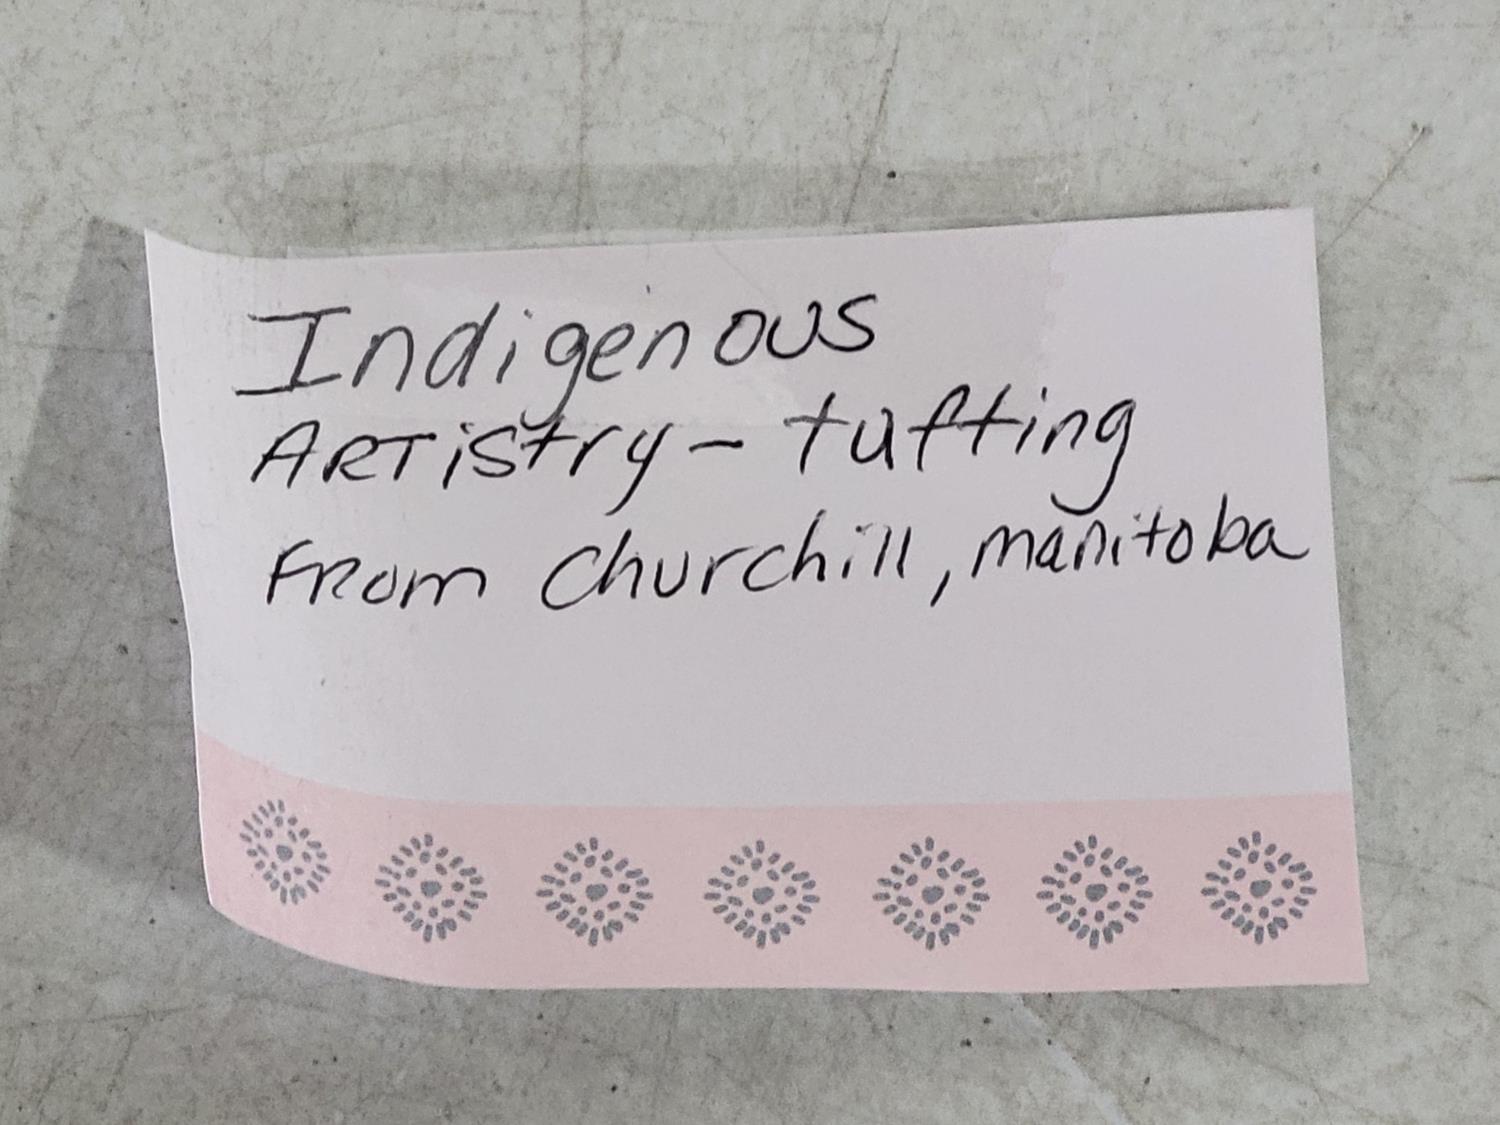 Indigenous
ARTistry - tufting
FRom Churchill, manitoba